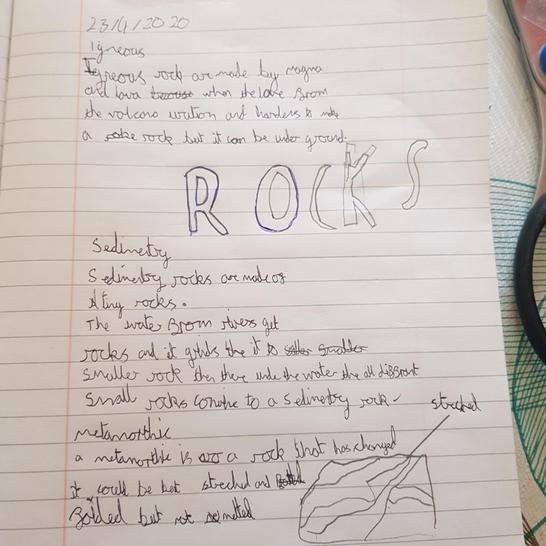 23/4/2020
Igneous
Igneous rock are made by magma
and lava because when the lava Brom
the volcano and hardens to make
a rock but it can be under ground.
ROCKS
Sedimetry
Sedimetry rocks are made of
tiny rocks.
The water Brom rivers get
rocks and it grinds the it to smaller
smaller rock then there unde the water the all diffront
Small rocks to a Sedimetry rock
streched
metamorthic
a metamorthic is a rock that has changed
it could be bet streched and
Bolded but not melted